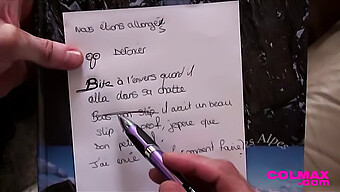 Nous étions allongés
Détoner
Bite à l'envers quand il
alla dans sa chatte
Pas un slip il avait un beau
slip
, j'espère que
Don
J'ai envie
comment faire
Alpes
COLMAX
.com